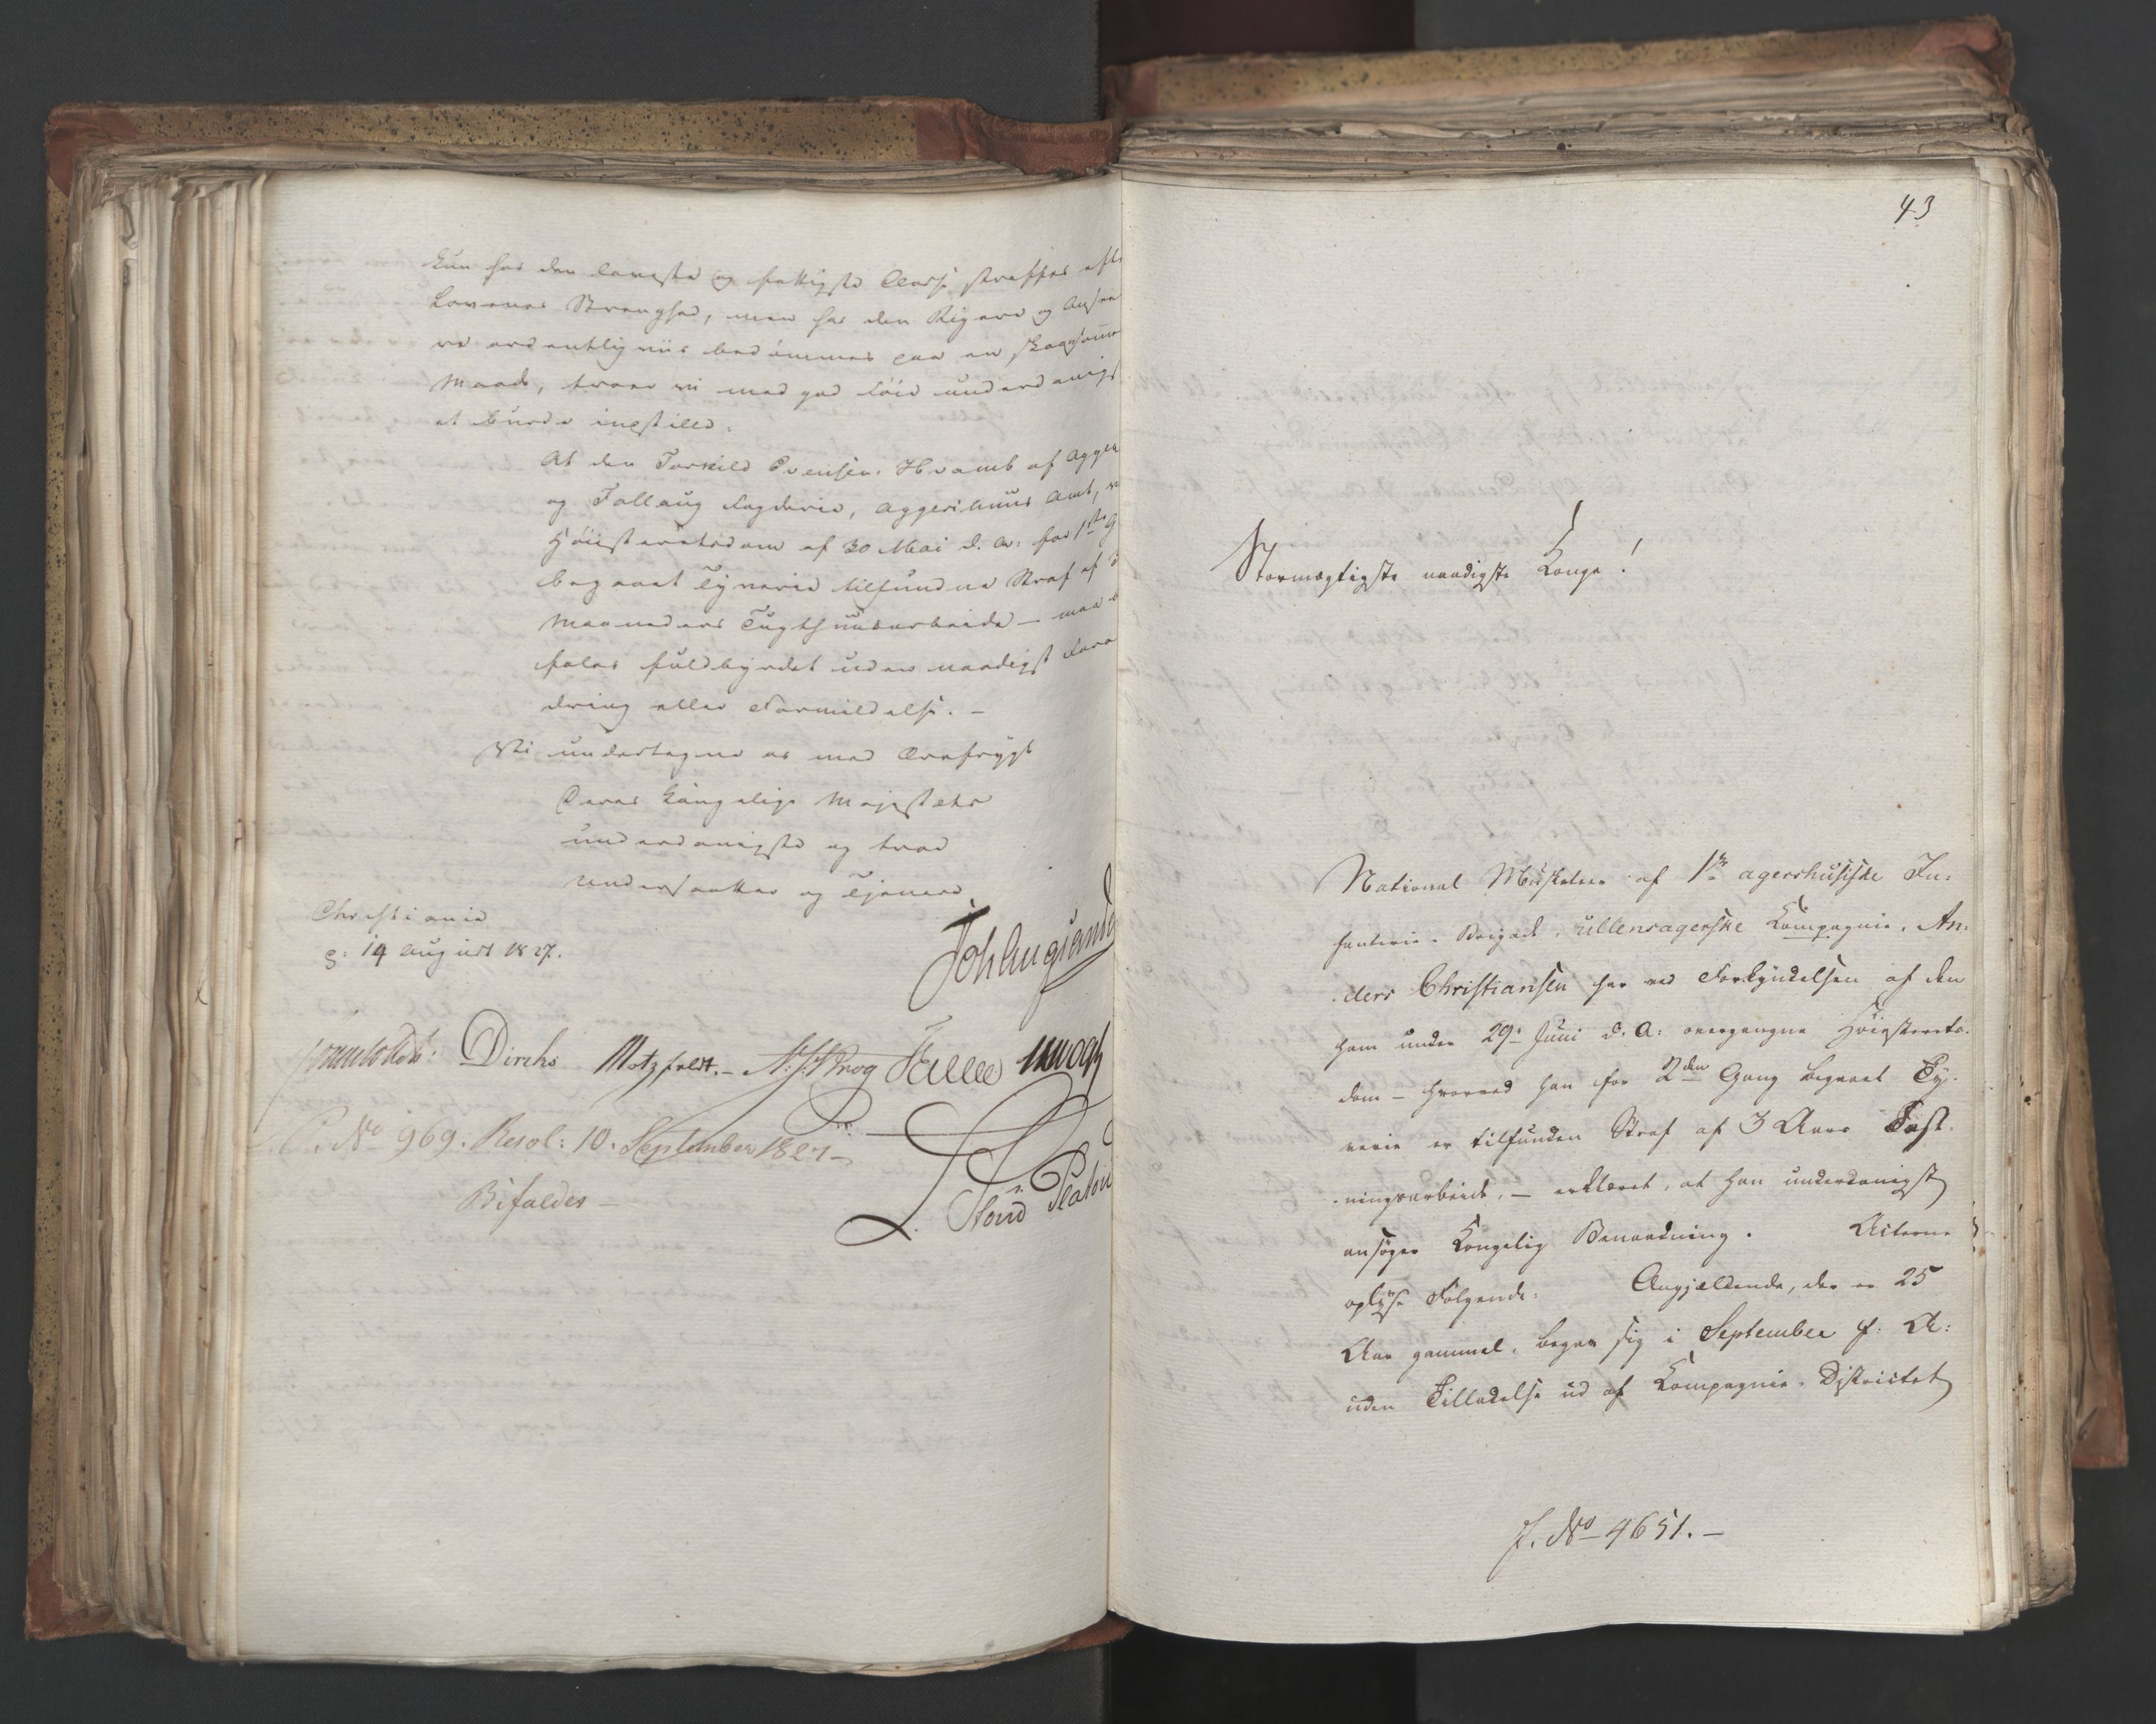 kun hos den laveste og fattigste Classe straffes efte
Lovenes Strenghed, men hos den Rigere og Ansee
re ordentligviis bedömmes paa en skaansom
Maade, troer vi med god Föie underdanigst
at burde indstille:
At den Torkild Evensen Hvamb af Agger
og Follaug Fogderie, Aggershuus Amt, v
Höiesteretsdom af 30 Mai d. A: for 1ste G
begaaet Tyverie tilfundne Straf af 3
Maaneders Tugthuusarbeide – maa
fuldbyrdet uden naadigst Foran
dring eller Formildelse. –
Vi undertegne os med Ærefrygt
Deres Kongelige Majestets
underdanigste og troe
Undersaatter og Tjenere
Christiania
d: 14 August 1827.
Joh Aug Sande
Diriks Motzfeldt. – Krog
P. No 969. Resol: 10. September 1827 –
Bifaldes –
L. Stoud Platou
43
Stormægtigste naadigste Konge!
National Musketeer af 1ste agershusiske In-
fanterie-Brigade, ullensagerske Kompagnie, An-
ders Christiansen har ved Forkyndelsen af den
ham under 29de Juni d. A: overgangne Höiesterets-
dom – hvorved han for 2den Gang begaaet Ty-
verie er tilfunden Straf af 3 Aars Fæst-
ningsarbeide, – erklæret, at han underdanigst
ansöger Kongelig Benaadning. Acterne
oplyse Fölgende: Angjældende, der er 25
Aar gammel, begav sig i September f: A:
uden Tilladelse ud af Kompagnie-Districtet
J. No 4651. –